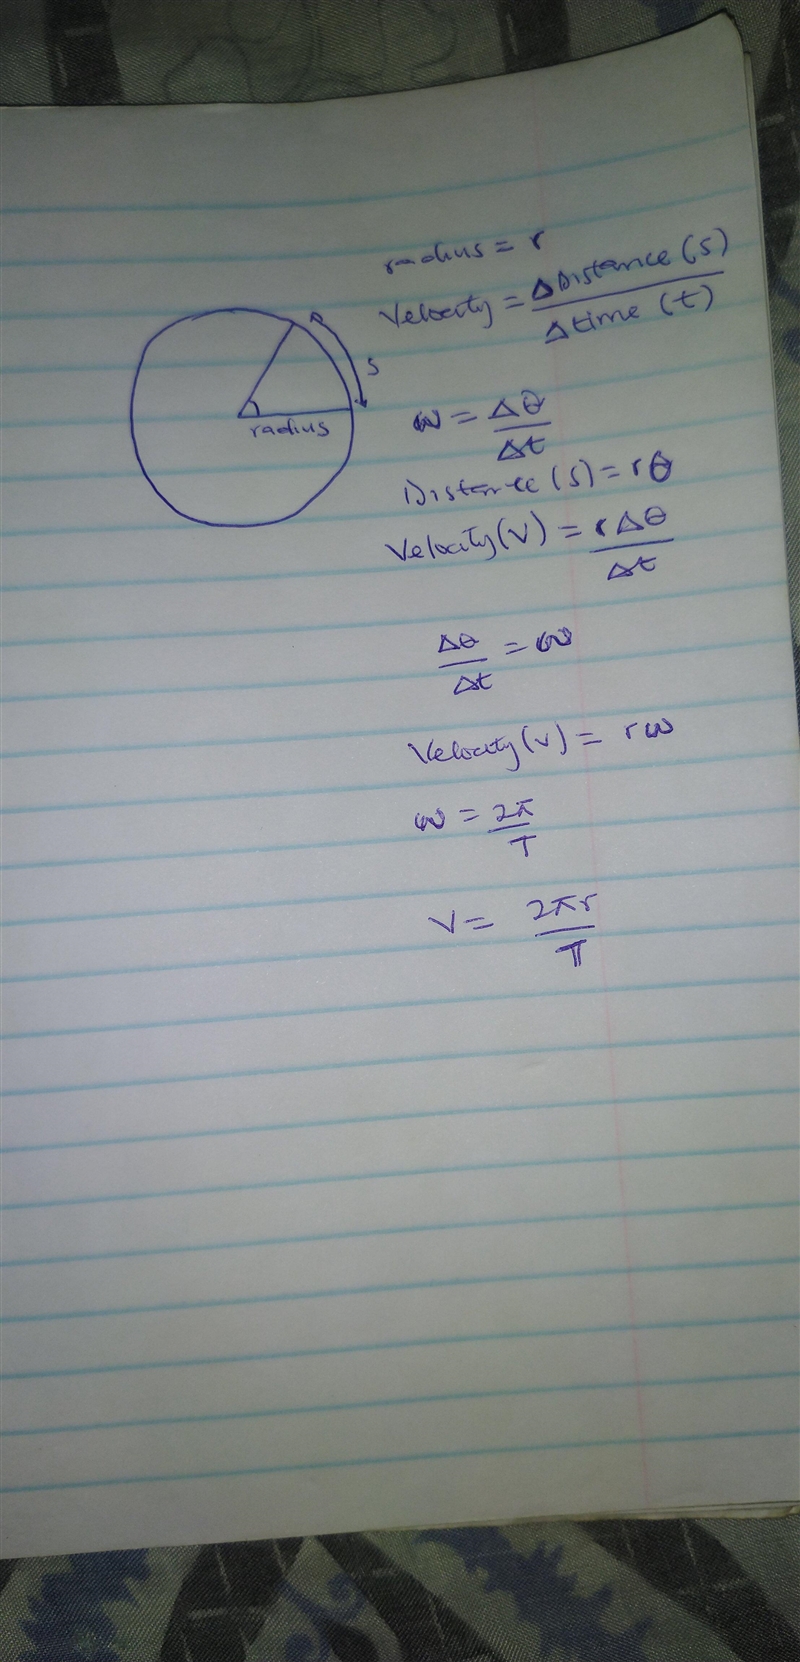 radius = r
Velocity = ΔDistance (s) / Δtime (t)
s
radius
ω = Δθ / Δt
Distance (s) = rθ
Velocity (v) = rΔθ / Δt
Δθ / Δt = ω
Velocity (v) = rω
ω = 2π / T
V = 2πr / T